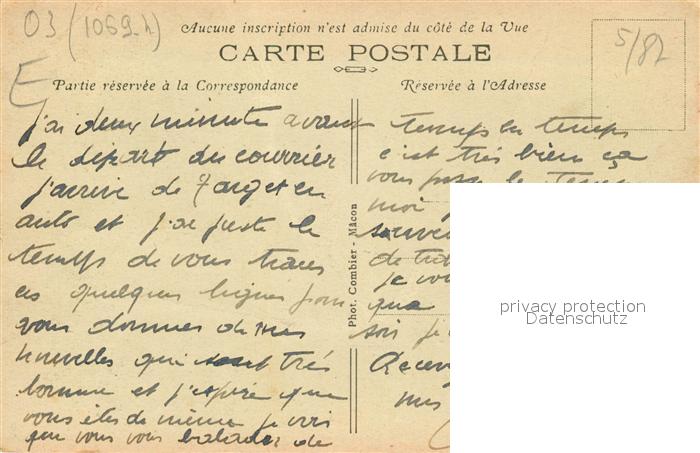 03 (1069-h)
5/82
E
Aucune inscription n'est admise du côté de la Vue
CARTE POSTALE
Partie réservée à la Correspondance
Réservée à l'Adresse
j'ai deux minute avant
le départ du courrier
j'arrive de Target en
auto et j'ai juste le
temps de vous traces
ces quelques lignes pour
vous donner de mes
nouvelles qui sont très
bonne et j'espère que
vous êtes de même je vois
que vous vous balader de
temps en temps
c'est très bien ça
vous passe le temps
moi
de
je vou
que
soir je
Recev
mes
Phot. Combier - Mâcon
privacy protection
Datenschutz